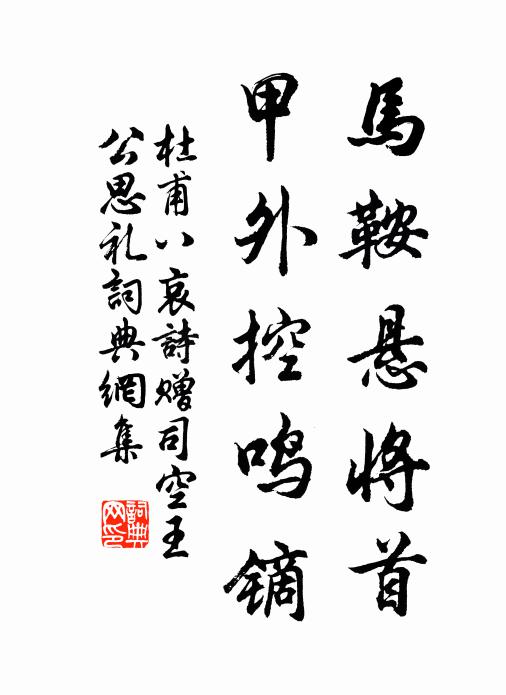 馬鞍悬將首
甲外控鸣镝
杜甫八哀詩贈司空王
公思礼詞典網集
詞典
网印